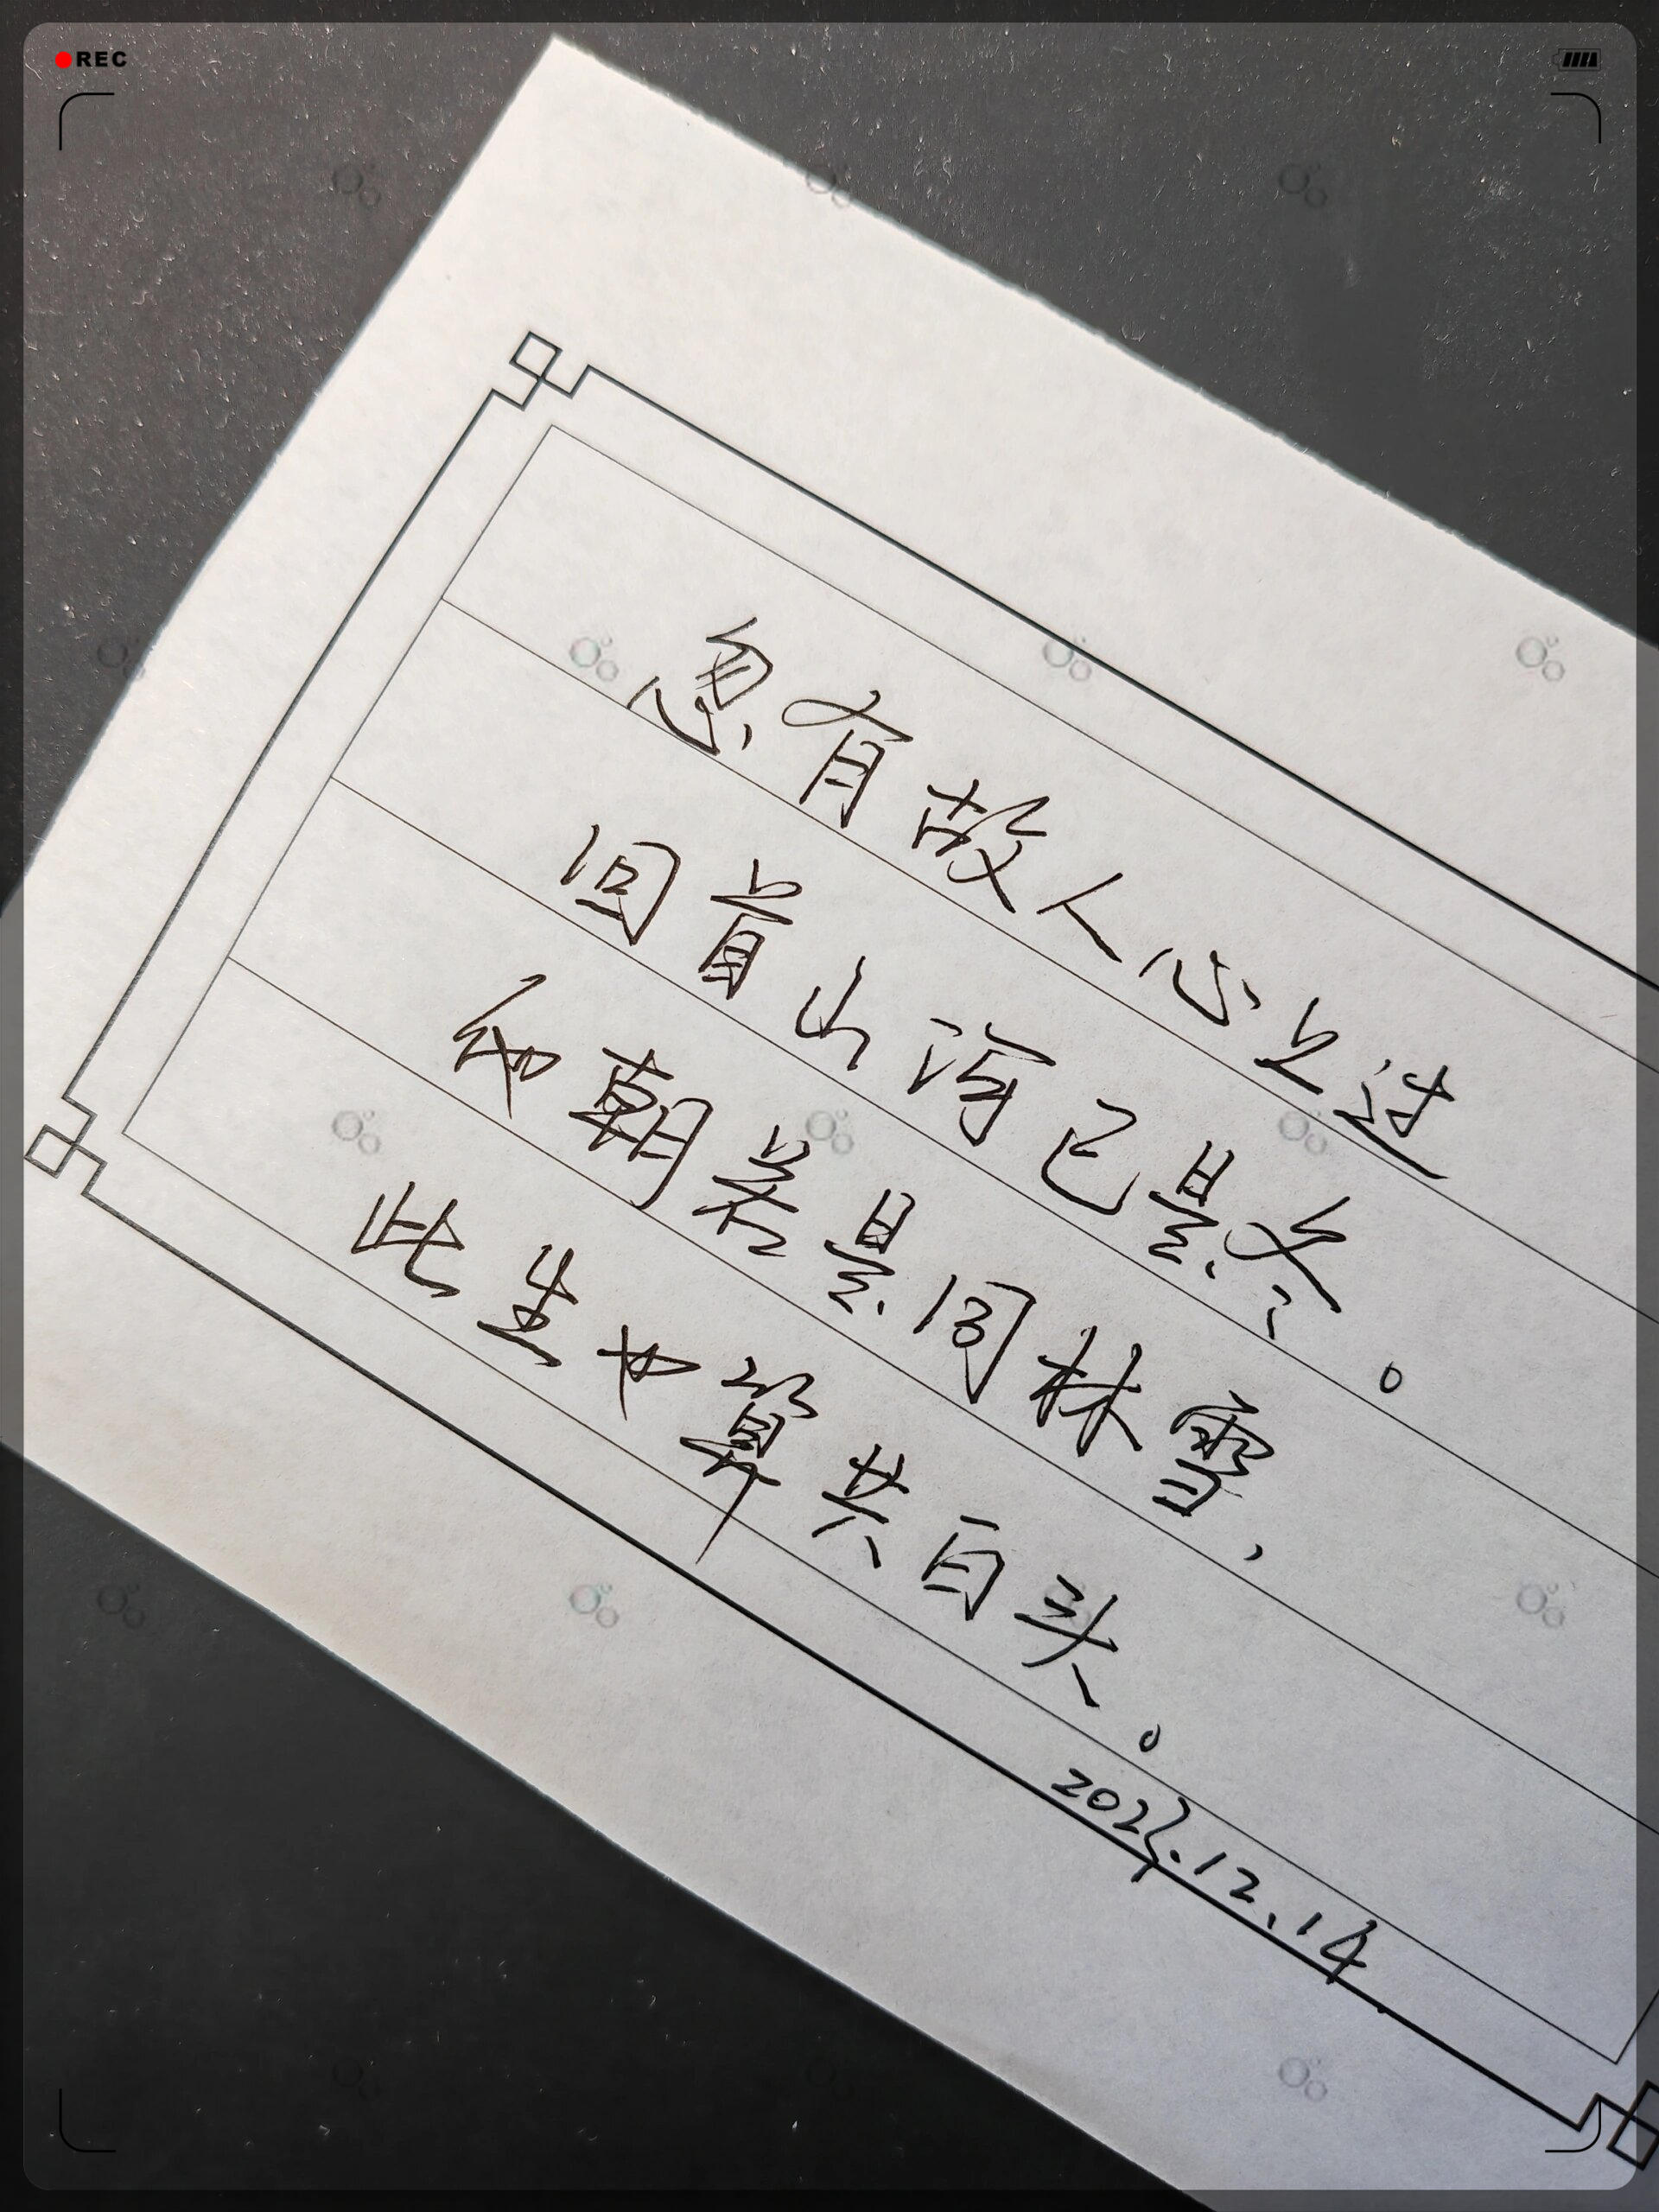 REC
忽有故人心上过
回首山河已是冬。
他朝若是同林雪，
此生也算共白头。
2023.12.14